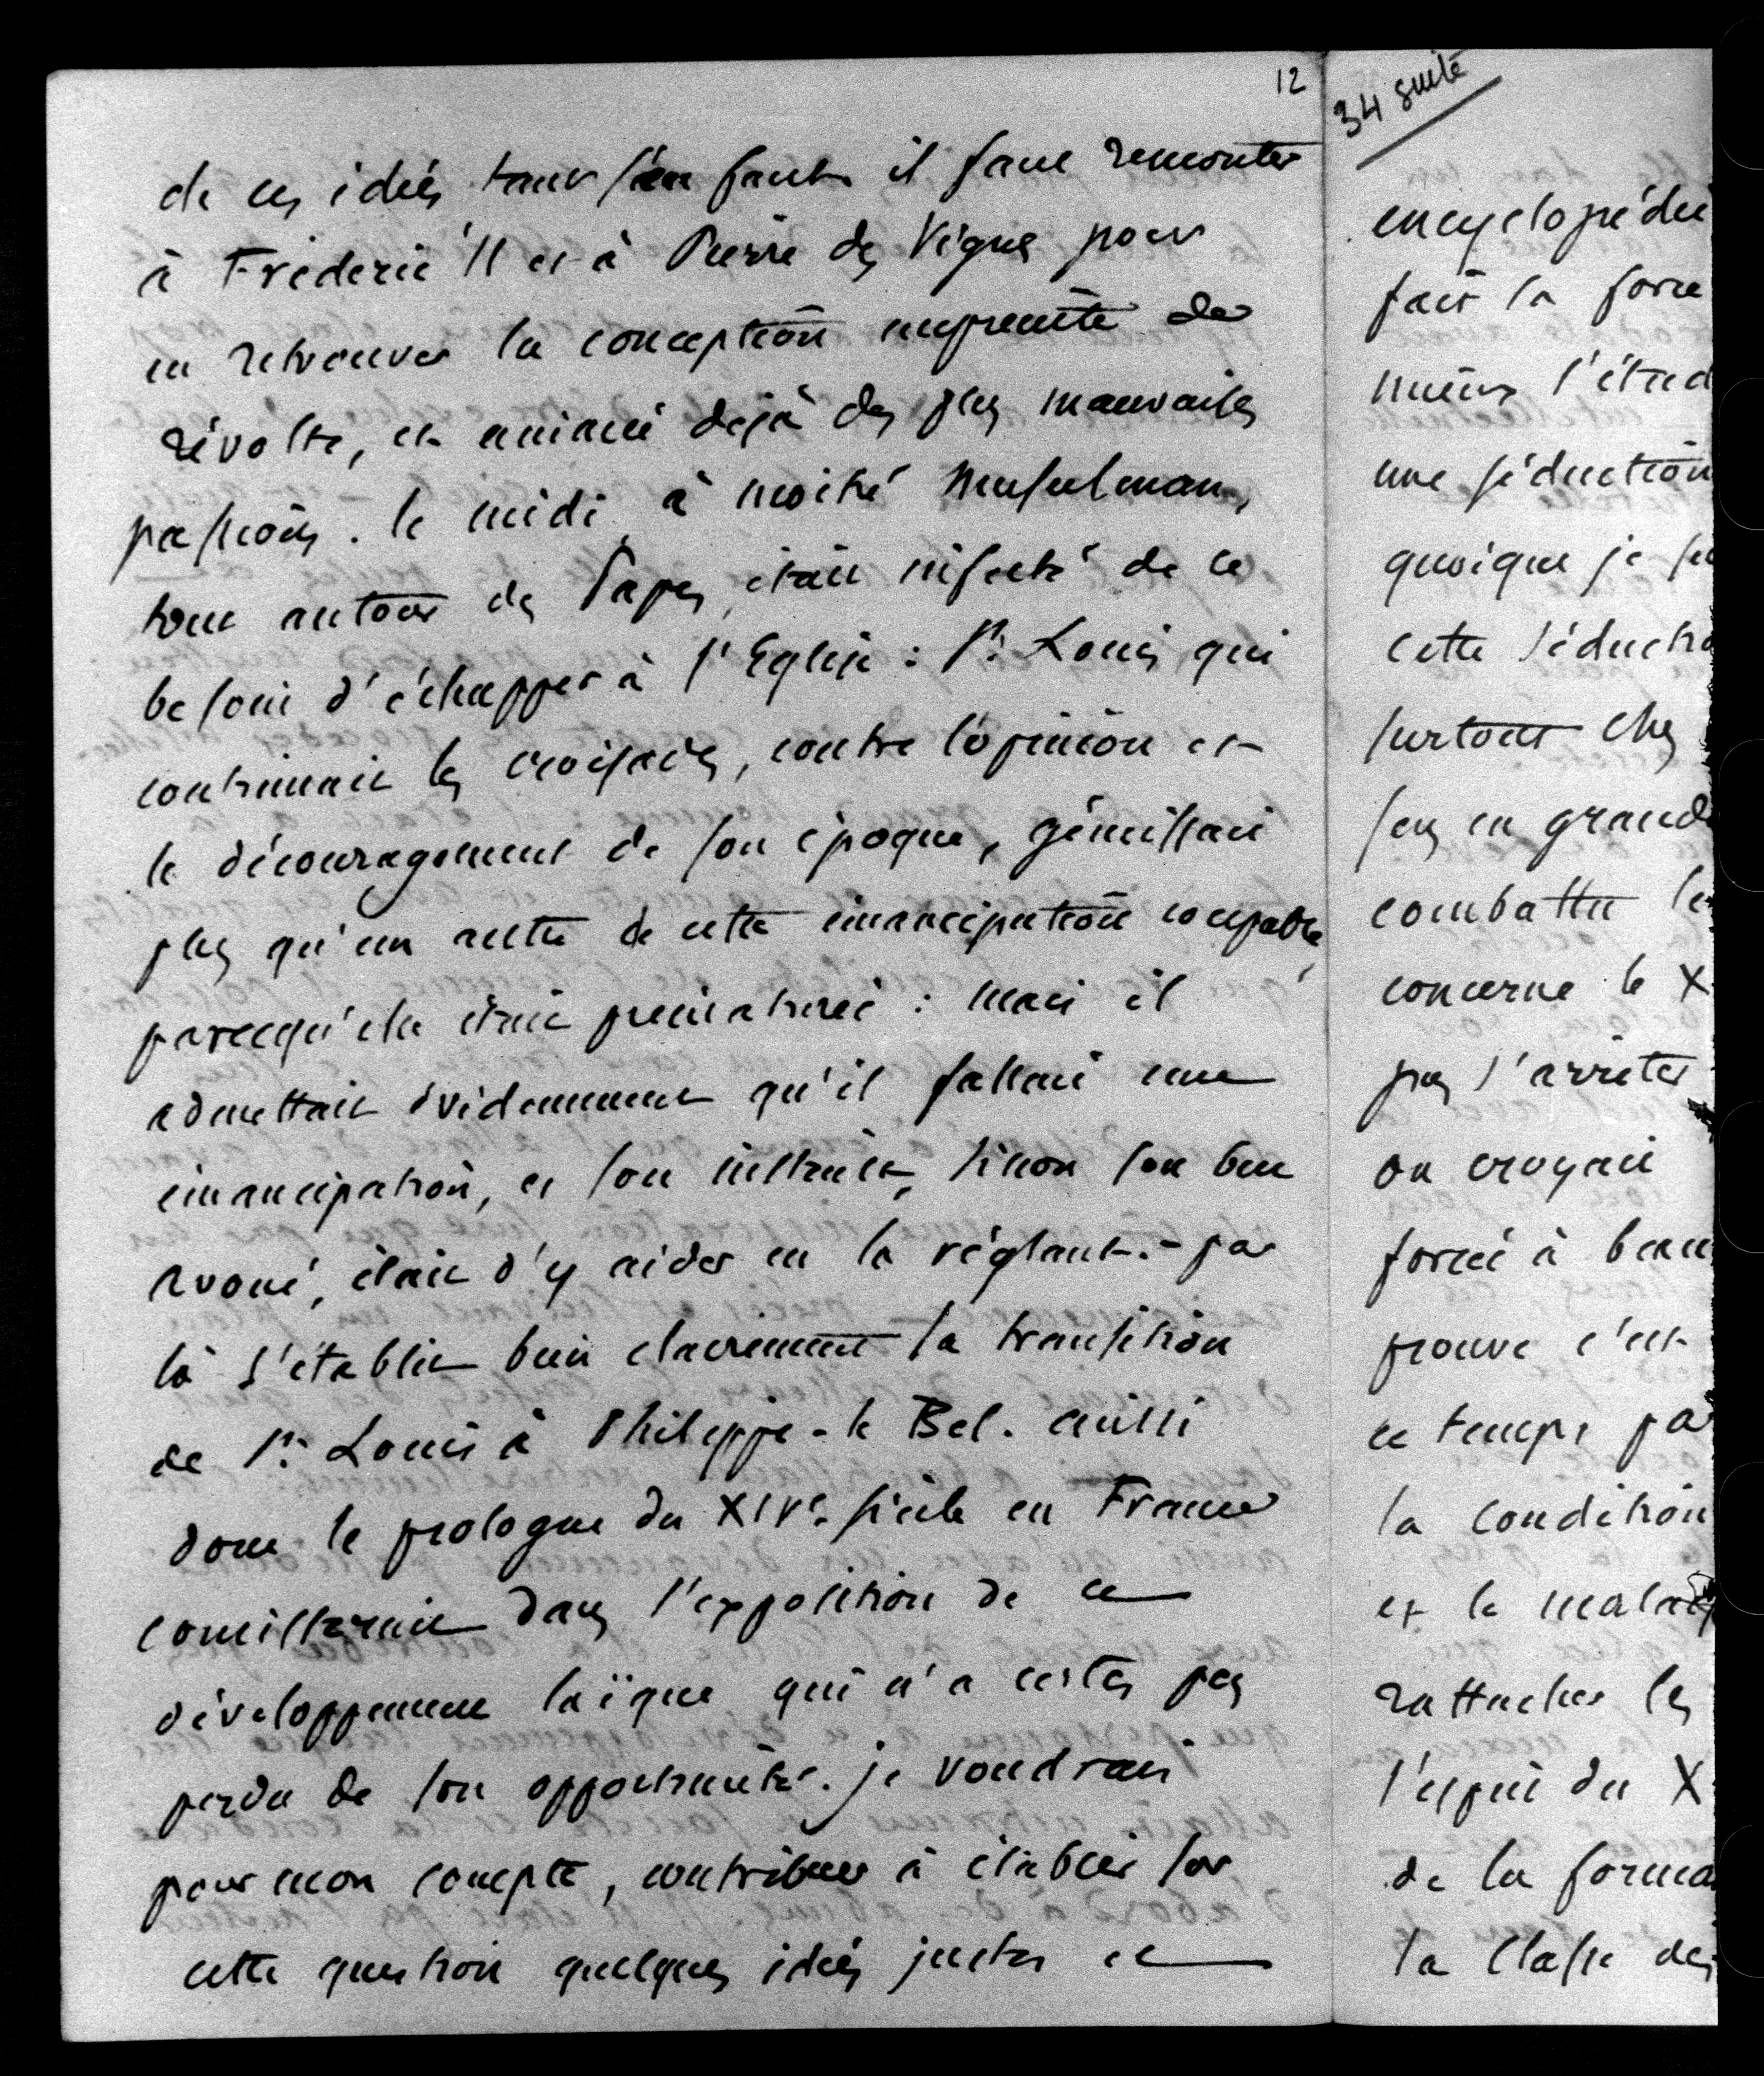 12
de ces idées tant s'en faut il faut remonter
à Fréderic II et à Pierre des Vignes pour
en retrouver la conception empreinte de
révolte, et animée dejà des plus mauvaises
passions. le midi à moitié Musulman,
tout autour des Papes, était infecté de ce
besoin d'échapper à l'Eglise : St. Louis qui
continuait les croisades, contre l'opinion et
le découragement de son époque, gémissait
plus qu'un autre de cette émancipation coupable,
parcequ'elle était prématurée : mais il
admettait évidemment qu'il fallait une
émancipation, et son instinct, sinon son but
avoué, était d'y aider en la réglant. - par
là s'établit bien clairement la transition
de St. Louis à Philippe-le Bel. aussi
donc le prologue du XIVe. siècle en France
consisterait dans l'exposition de ce
développement laïque qui n'a certes pas
perdu de son opportunité. je voudrais
pour mon compte, contribuer à établir sur
cette question quelques idées justes et
34 suite
encyclopédi
fait la force
mieux l'étud
une séduction
quoique je su
cette séductio
surtout chez
sens en grand
combattu le
concerne le X
pas s'arrêter
on croyait
forcé à beau
prouve c'est
ce temps pa
la condition
et le malad
rattacher les
l'esprit du X
de la forma
la classe des